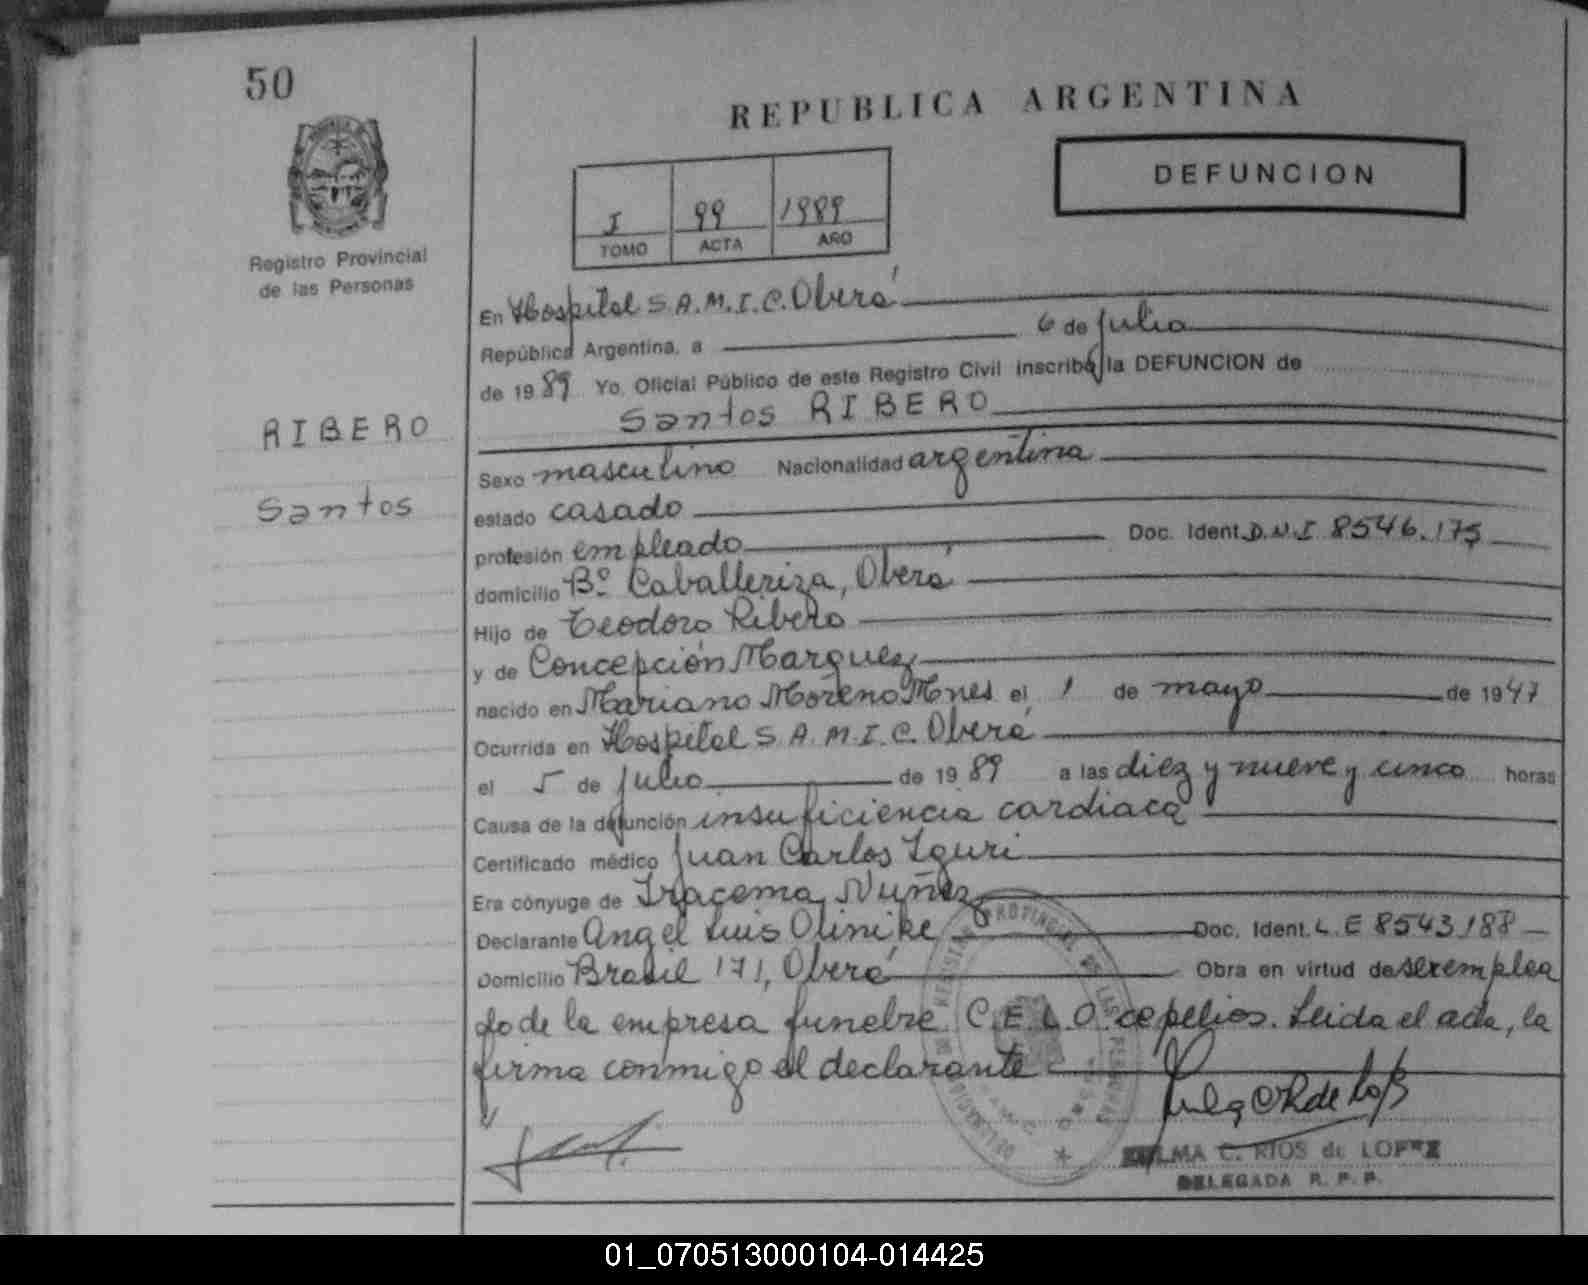 50
REPUBLICA ARGENTINA
DEFUNCION
I 99 1989
TOMO ACTA AÑO
Registro Provincial
de las Personas
En Hospital S.A.M.I.C. Oberá
República Argentina, a 6 de julio
de 1989 Yo, Oficial Público de este Registro Civil inscribo la DEFUNCION de
Santos RIBERO
RIBERO
Santos
Sexo masculino Nacionalidad argentina
estado casado
profesión empleado Doc. Ident. D.N.I 8546.175
domicilio Bº Caballeriza, Oberá
Hijo de Teodoro Ribero
y de Concepción Marquez
nacido en Mariano Moreno Mnes el 1 de mayo de 1947
Ocurrida en Hospital S.A.M.I.C. Oberá
el 5 de julio de 1989 a las diez y nueve y cinco horas
Causa de la defunción insuficiencia cardiaca
Certificado médico Juan Carlos Iguri
Era cónyuge de Iracema Nuñez
Declarante Angel Luis Olinike Doc. Ident. L.E 8543188
Domicilio Brasil 171, Oberá Obra en virtud de ser emplea
do de la empresa funebre C.E.L.O. cepelios. Leida el acta, la
firma conmigo el declarante
ZULMA C. RIOS de LOPEZ
DELEGADA R. P. P.
01_070513000104-014425